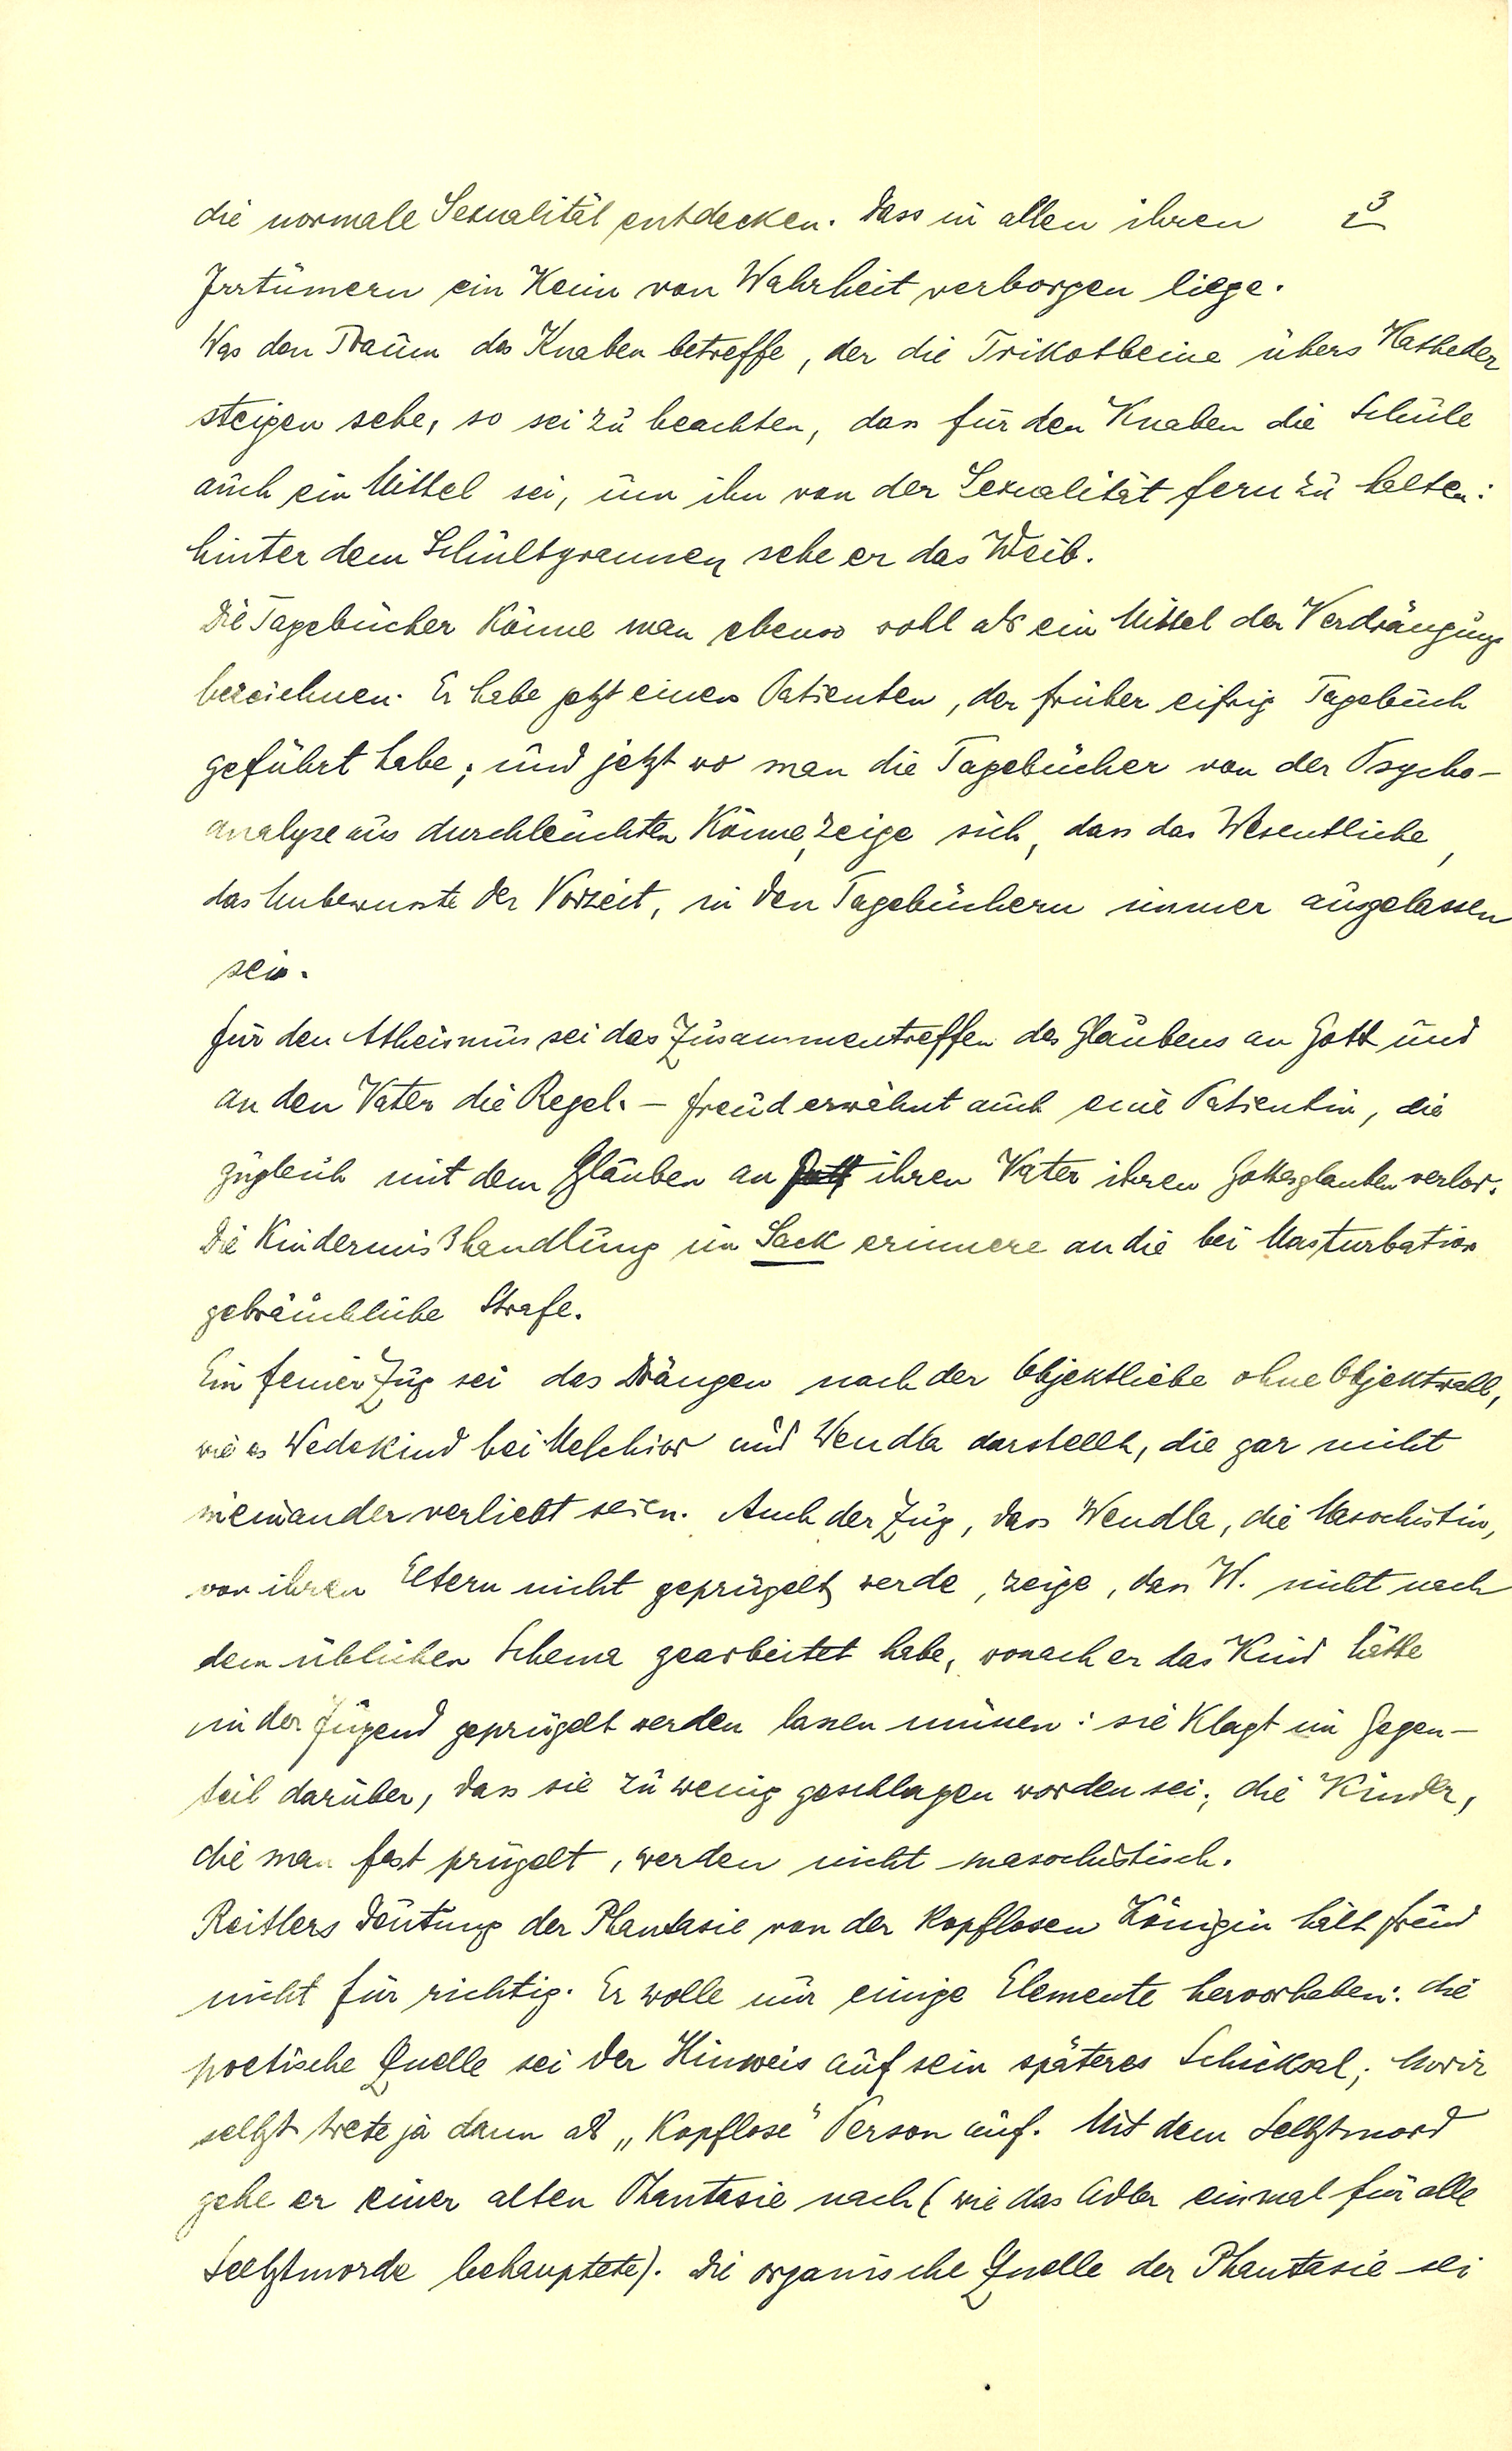 die normale Sexualität entdecken. Dass in allen ihren 3
Irrtümern ein Keim von Wahrheit verborgen liege.
Was den Traum des Knaben betreffe, der die Trikotbeine übers Katheder
steigen sehe, so sei zu beachten, dass für den Knaben die Schule
auch ein Mittel sei, um ihn von der Sexualität fern zu halten:
hinter dem Schultyrannen sehe er das Weib.
Die Tagebücher könne man ebenso wohl als ein Mittel der Verdrängung
bezeichnen. Er habe jetzt einen Patienten, der früher eifrig Tagebuch
geführt habe; und jetzt wo man die Tagebücher von der Psycho-
analyse aus durchleuchten könne, zeige sich, dass das Wesentliche,
das Unbewusste der Vorzeit, in den Tagebüchern immer ausgelassen
sei.
Für den Atheismus sei das Zusammentreffen des Glaubens an Gott und
an den Vater die Regel. – Freud erwähnt auch eine Patientin, die
zugleich mit dem Glauben an ihren Vater ihren Gottesglauben verlor.
Die Kindermißhandlung im Sack erinnere an die bei Masturbation
gebräuchliche Strafe.
Ein feiner Zug sei das Drängen nach der Objektliebe ohne Objektwahl,
wie es Wedekind bei Melchior und Wendla darstellt, die gar nicht
ineinander verliebt seien. Auch der Zug, dass Wendla, die Masochistin,
von ihren Eltern nicht geprügelt werde, zeige, dass W. nicht nach
dem üblichen Schema gearbeitet habe, wonach er das Kind hätte
in der Jugend geprügelt werden lassen müssen: sie klagt im Gegen-
teil darüber, dass sie zu wenig geschlagen worden sei; die Kinder,
die man fest prügelt, werden nicht masochistisch.
Reitlers Deutung der Phantasie von der kopflosen Königin hält Freud
nicht für richtig. Er wolle nur einige Elemente hervorheben: die
poetische Quelle sei der Hinweis auf sein späteres Schicksal; Moriz
selbst trete ja dann als „kopflose" Person auf. Mit dem Selbstmord
gehe er einer alten Phantasie nach (wie das Adler einmal für alle
Selbstmorde behauptete). Die organische Quelle der Phantasie sei